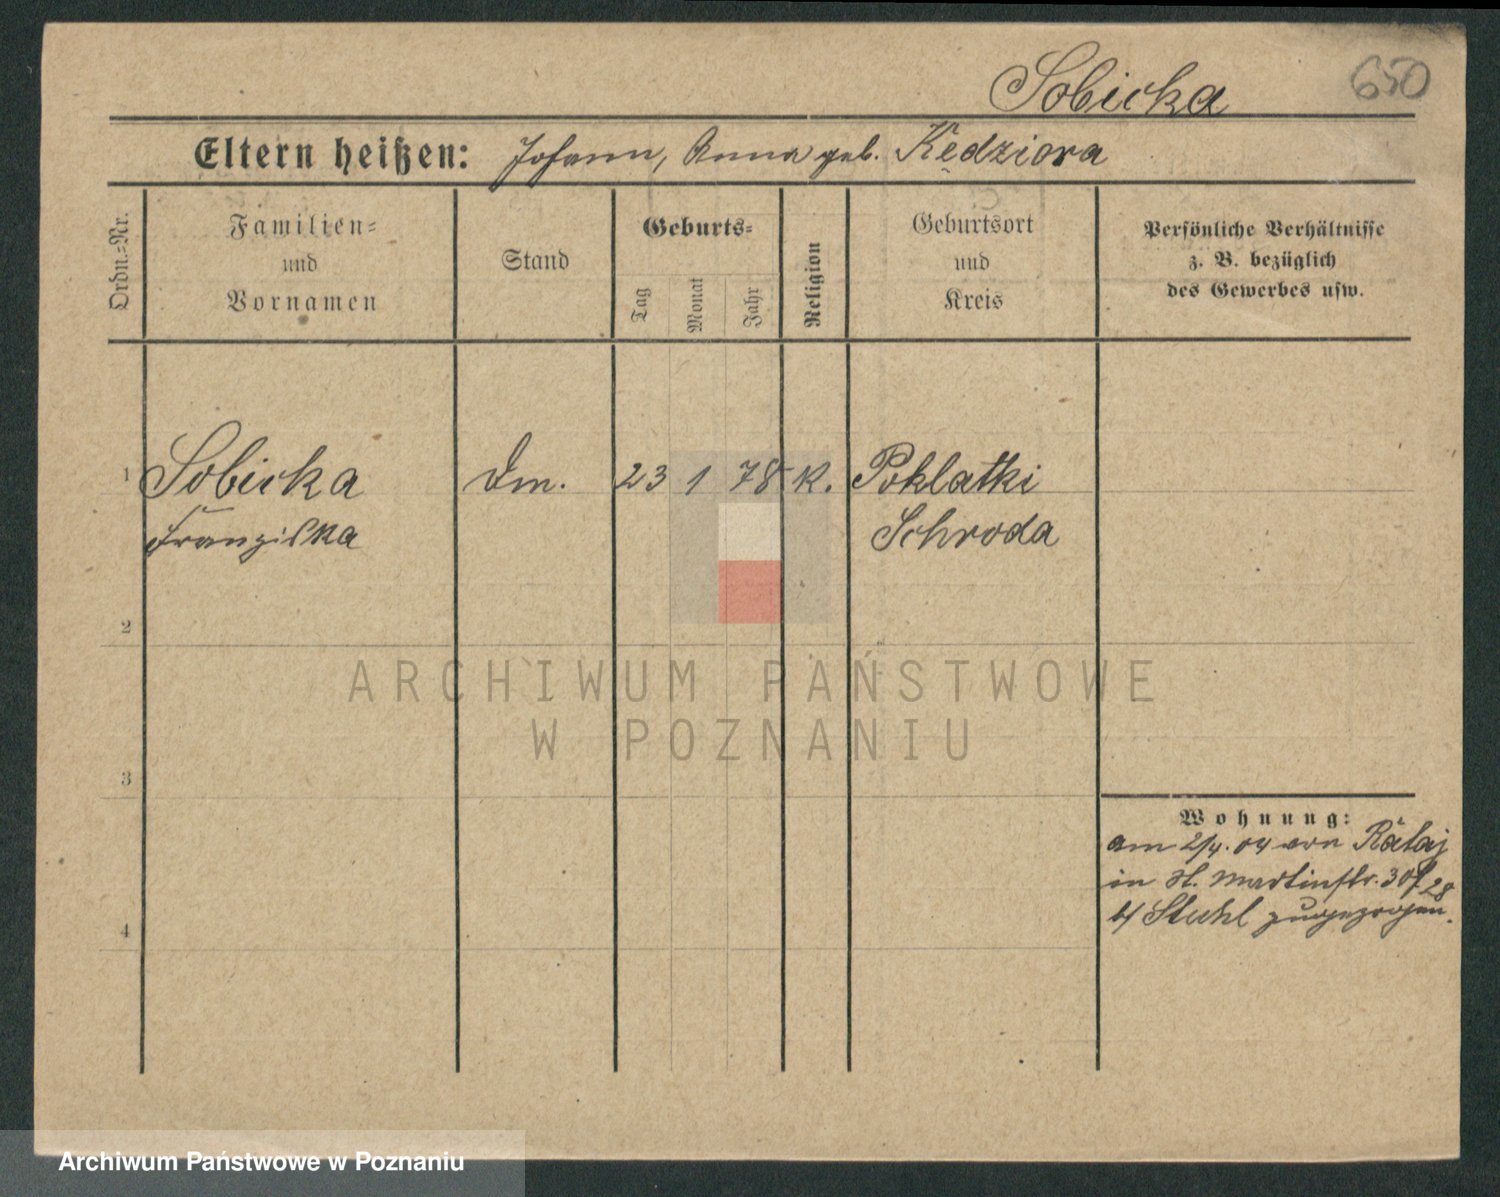 Sobicka
650
Eltern heißen: Johann, Anna geb. Kędziora
Ordn.-Nr.
Familien-
und
Vornamen
Stand
Geburts-
Tag
Monat
Jahr
Religion
Geburtsort
und
Kreis
Persönliche Verhältnisse
z. B. bezüglich
des Gewerbes usw.
1 Sobicka Dm. 23 1 78 K. Poklatki
Franziska Schroda
2
ARCHIWUM PAŃSTWOWE
W POZNANIU
3
Wohnung:
am 2/4. 04 von Rataj
in St. Martinstr.
b/ Stuhl zugezogen.
4
Archiwum Państwowe w Poznaniu